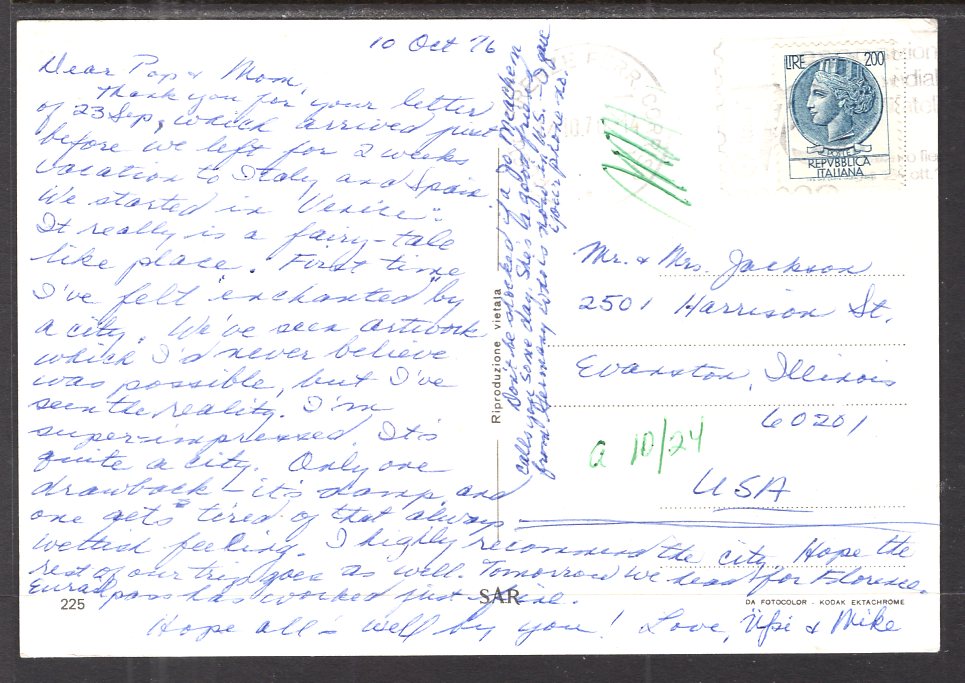 10 Oct '76
Dear Pop & Mom,
Thank you for your letter
of 23 Sep, which arrived just
before we left for 2 weeks
vacation to Italy and Spain.
We started in Venice.
It really is a fairy-tale
like place. First time
I've felt "enchanted" by
a city. We've seen artwork
which I'd never believe
was possible, but I've
seen the reality. I'm
super-impressed. It's
quite a city. Only one
drawback - it's damp, and
one gets tired of that always
wettish feeling. I highly recommend the city. Hope the
rest of our trip goes as well. Tomorrow we head for Florence.
Eurailpass has worked just fine.
Hope all's well by you! Love, & Mike
Don't be shocked if a Jo Meachem
calls you some day. She's a good friend
from Germany who is now in U.S. I gave
your phone no.
Riproduzione vietata
LIRE 200
POSTE
REPVBBLICA
ITALIANA
Mr. & Mrs. Jackson
2501 Harrison St.
Evanston, Illinois
60201
USA
a 10/24
225
SAR
DA FOTOCOLOR - KODAK EKTACHROME